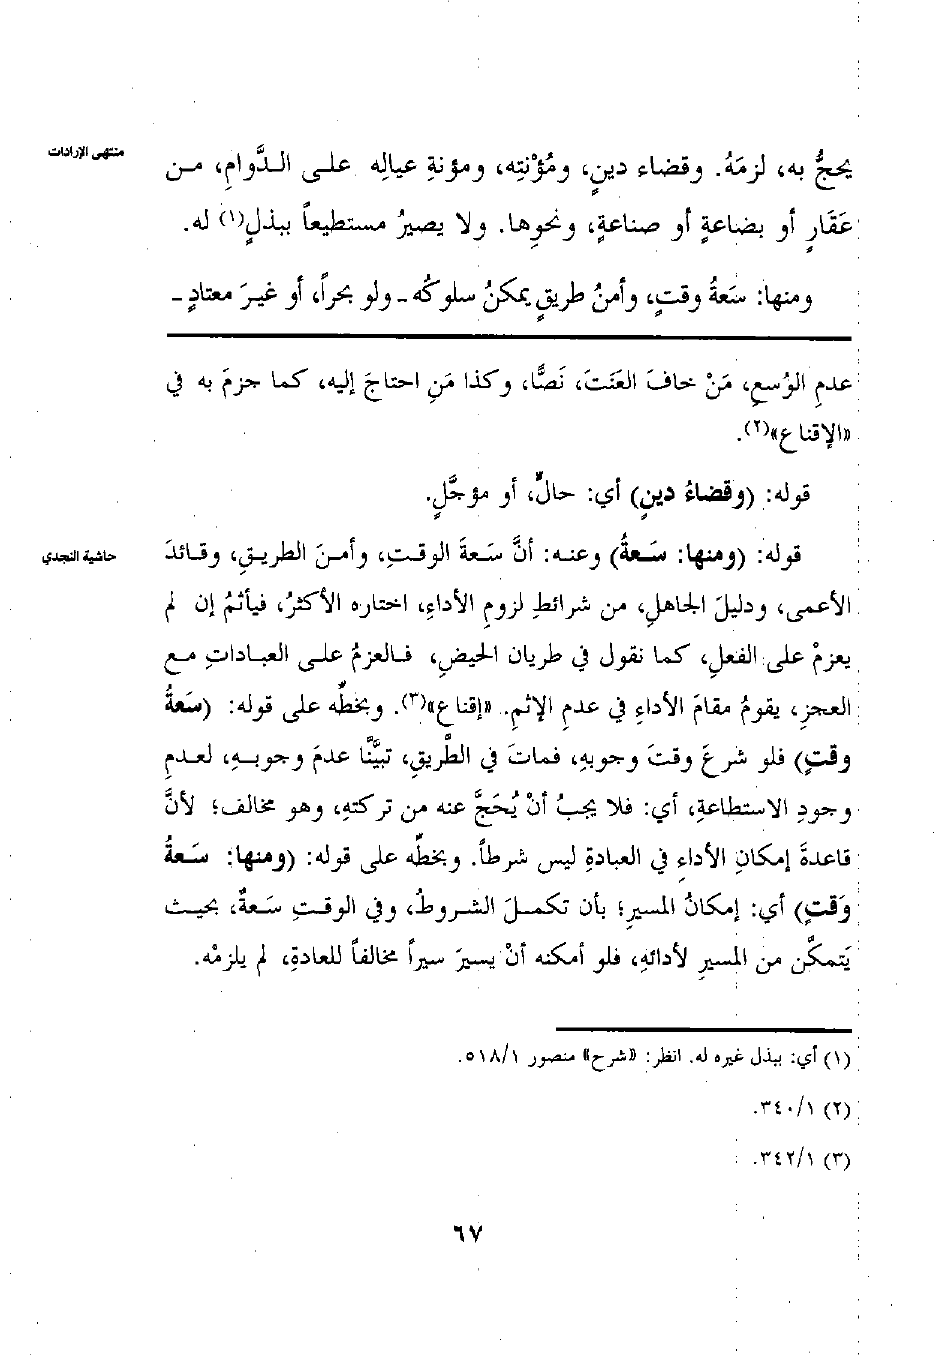 منتهى الإرادات
يحجُّ به، لزمَهُ. وقضاء دينٍ، ومُؤْنتِه، ومؤنةِ عيالِه على الدَّوامِ، من
عَقَارٍ أو بضاعةٍ أو صناعةٍ، ونحوِها. ولا يصيرُ مستطيعاً ببذلٍ(١) له.
ومنها: سَعةُ وقتٍ، وأمنُ طريقٍ يمكنُ سلوكُه ـ ولو بحراً، أو غيرَ معتادٍ ـ
عدمِ الوُسعِ، مَنْ خافَ العَنَتَ، نَصًّا، وكذا مَنِ احتاجَ إليه، كما جزمَ به في
«الإقناع»(٢).
قوله: (وقضاءُ دينٍ) أي: حالٍّ، أو مؤجَّلٍ.
حاشية النجدي
قوله: (ومنها: سَعةُ) وعنه: أنَّ سَعةَ الوقتِ، وأمنَ الطريقِ، وقائدَ
الأعمى، ودليلَ الجاهلِ، من شرائطِ لزومِ الأداءِ، اختاره الأكثرُ، فيأثمُ إن لم
يعزمْ على الفعلِ، كما نقول في طريان الحيضِ، فالعزمُ على العباداتِ مع
العجزِ، يقومُ مقامَ الأداءِ في عدمِ الإثمِ. «إقناع»(٣). وبخطِّه على قوله: (سَعةُ
وقتٍ) فلو شرعَ وقتَ وجوبِه، فماتَ في الطَّريقِ، تبيَّنَّا عدمَ وجوبِهِ، لعدمِ
وجودِ الاستطاعةِ، أي: فلا يجبُ أنْ يُحَجَّ عنه من تركتهِ، وهو مخالف؛ لأنَّ
قاعدةَ إمكانِ الأداءِ في العبادةِ ليس شرطاً. وبخطِّه على قوله: (ومنها: سَعةُ
وَقتٍ) أي: إمكانُ المسيرِ؛ بأن تكملَ الشروطُ، وفي الوقتِ سَعةٌ، بحيث
يَتمكَّن من المسيرِ لأدائهِ، فلو أمكنه أنْ يسيرَ سيراً مخالفاً للعادةِ، لم يلزمْه.
(١) أي: ببذل غيره له. انظر: «شرح» منصور ٥١٨/١.
(٢) ٣٤٠/١.
(٣) ٣٤٢/١.
٦٧